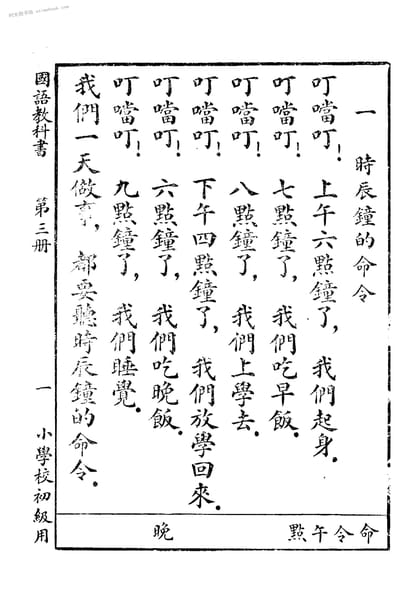 一 時辰鐘的命令
叮噹叮! 上午六點鐘了, 我們起身.
叮噹叮! 七點鐘了, 我們吃早飯.
叮噹叮! 八點鐘了, 我們上學去.
叮噹叮! 下午四點鐘了, 我們放學回來.
叮噹叮! 六點鐘了, 我們吃晚飯.
叮噹叮! 九點鐘了, 我們睡覺.
我們一天做事, 都要聽時辰鐘的命令.
命令午點 晚
國語教科書 第三册 一 小學校初級用